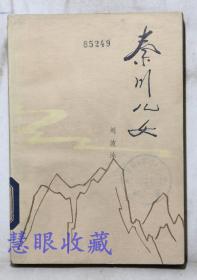 85249
秦川儿女
刘波泳
慧眼收藏